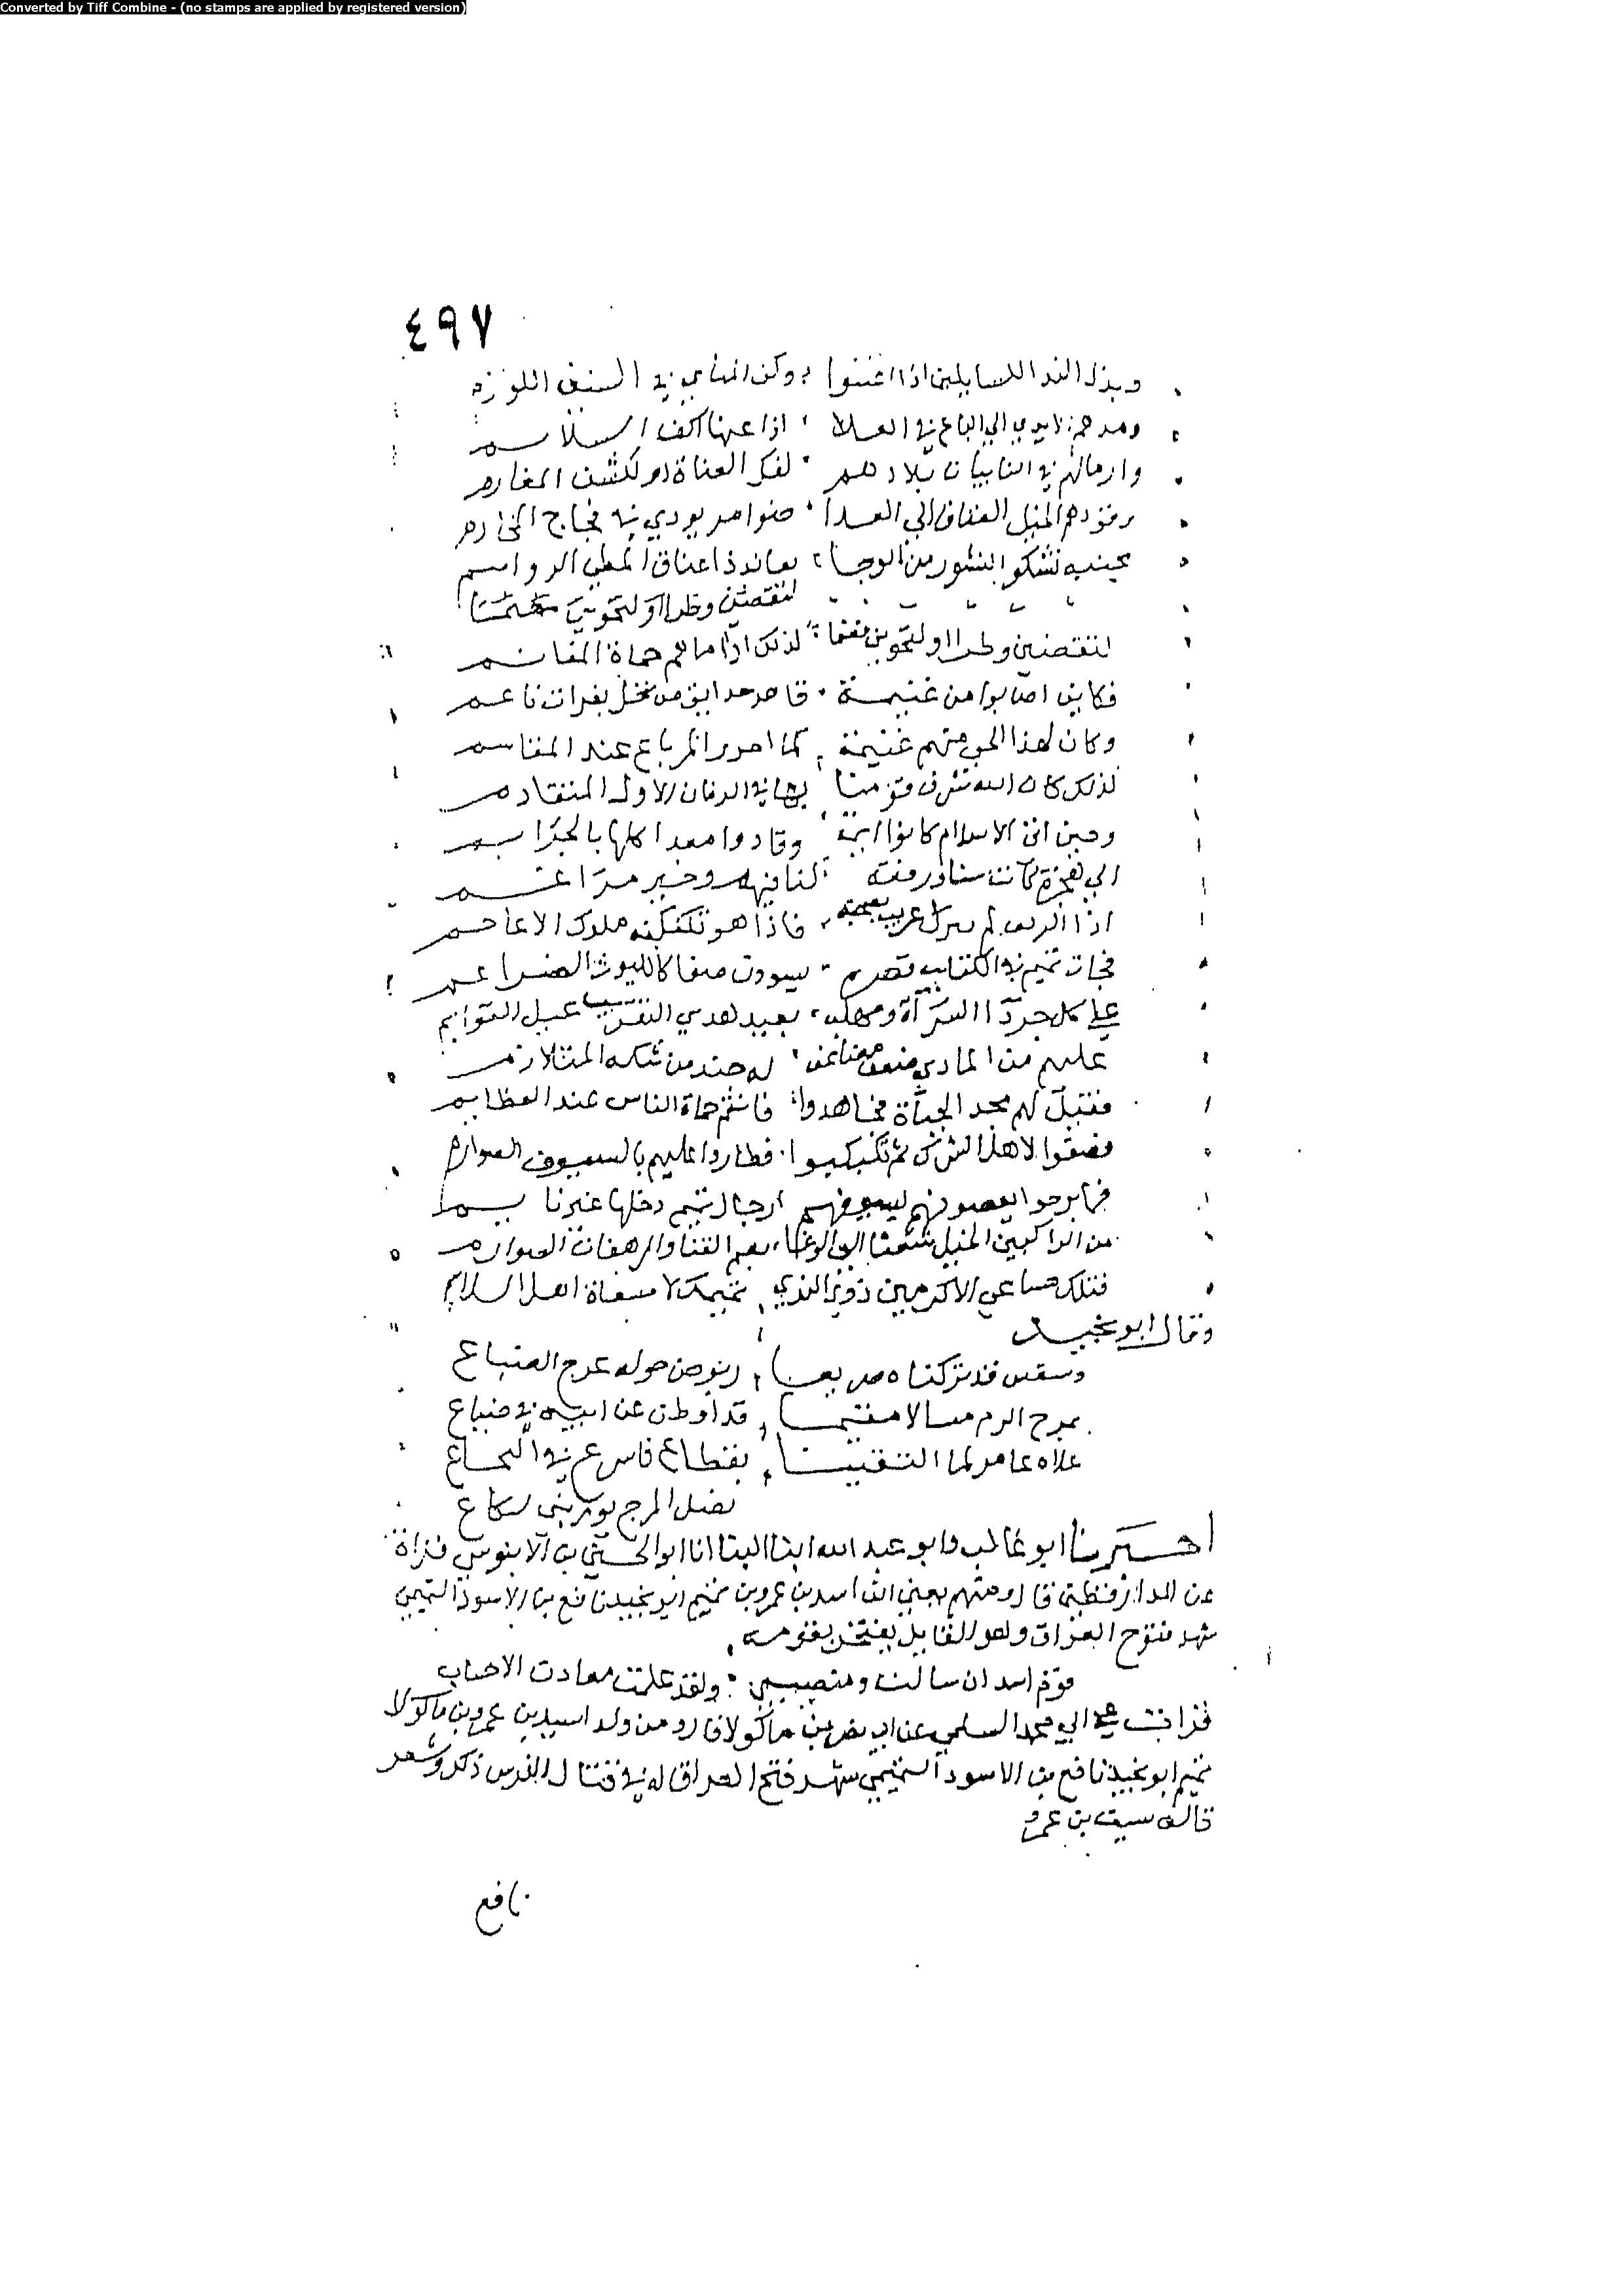 Converted by Tiff Combine - (no stamps are applied by registered version)
٤٩٧
وبذل الندا للسايلين اذا اعتفوا وكب المتالي في السنين اللوازم
ومدهم الايدي الي الباع في العلا اذا عنها اكف السلاسم
وارسالهم في النايبات تلادهم لفك العناة او لكشف المغارم
وقودهم الخيل العتاق الي العدا ضوامر يودي في فجاج المخارم
مجنبه تشكو النسور من الوجا يعاندن اعناق المطي الرواسم
لتقضين وطرا او لتحوين
لتنقضين وطرا او لتحوين مغنما كذلك اذا ما هم حماة المغانم
فكاين اصابوا من غنيمة قاهر حدايق من نخل بفرات ناعم
وكان لهذا الحي منهم غنيمة كما احرزوا المرباع عند المقاسم
كذلك كان الله شرف قومنا بها في الزمان الاول المتقادم
وحين اتي الاسلام كانوا ايمة وقادوا معدا كلها بالخزايم
الي هجرة كانت سنا ورفعة لنا فيهم وخير مراغم
اذا الريف لم ينزل عريب بصحنه فاذا هو تكنفه ملوك الاعاجم
فجات تميم في الكتايب نصرة يسيرون صفا كالليوث الضراغم
علي كل جرداء السراة وملهب بعيد مدي التقريب عبل القوايم
عليهم من الماذي زعف مضاعف له حبك من شكه المتلازم
فقيل لهم مجد الحياة فجاهدوا فانتم حماة الناس عند العظايم
فصفوا لاهل الشرك ثم تكبكبوا فطاروا عليهم بالسيوف الصوارم
فما برحوا يعصونهم بسيوفهم رجال تميم دحلها غير نايم
من الراكبين الخيل شعثا الي الوغا بصم القنا والمرهفات الصوارم
فتلك مساعي الاكرمين ذوي الندي تميمك لا مسعاة اهل السلايم
وقال ابو نجيد
وسقس قد تركناه صريعا ينوص حوله عرج الضباع
بمرج الروم مسالا مقيما قد اوطن عن ابيه في ضباع
علاه عامر لما التقينا بقطاع فاسرع في النخاع
بفضل المرج
اخبرنا ابو غالب وابو عبد الله ابنا البنا انا ابو الحسين بن الابنوسي قراة
عن الدارقطني قال ومنهم يعني اسيد بن عمرو بن تميم ابو نجيد نافع بن الاسود التميمي
شهد فتوح العراق وهو القايل يفتخر بقومه
قوم اسد ان سالت ومنصبي ولقد علمت معادن الاحساب
قرات علي ابي محمد السلمي عن ابي نصر بن ماكولا قال ومن ولد اسيد بن عمرو بن ماكولا
تميم ابو نجيد نافع بن الاسود التميمي شهد فتح العراق له في قتال الفرس ذكر وشعر
قاله سيف بن عمرو
نافع